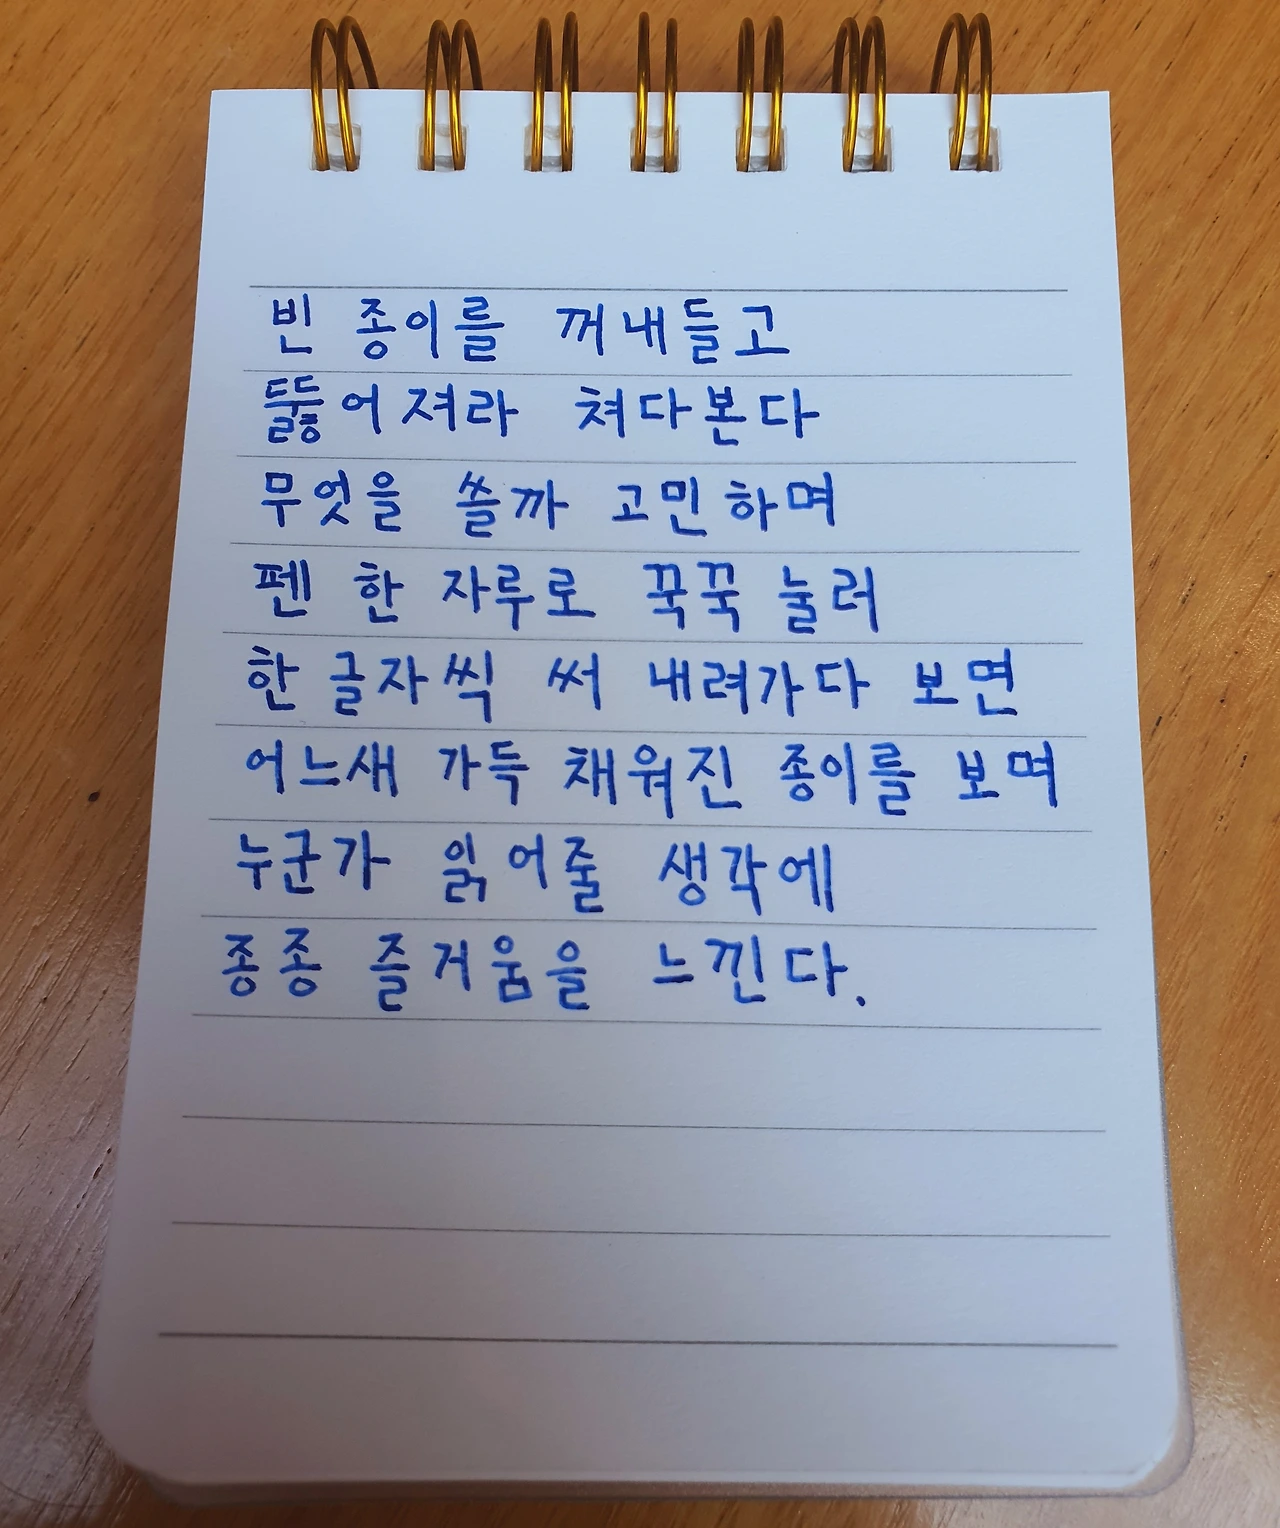 빈 종이를 꺼내들고
뚫어져라 쳐다본다
무엇을 쓸까 고민하며
펜 한 자루로 꾹꾹 눌러
한 글자씩 써 내려가다 보면
어느새 가득 채워진 종이를 보며
누군가 읽어줄 생각에
종종 즐거움을 느낀다.